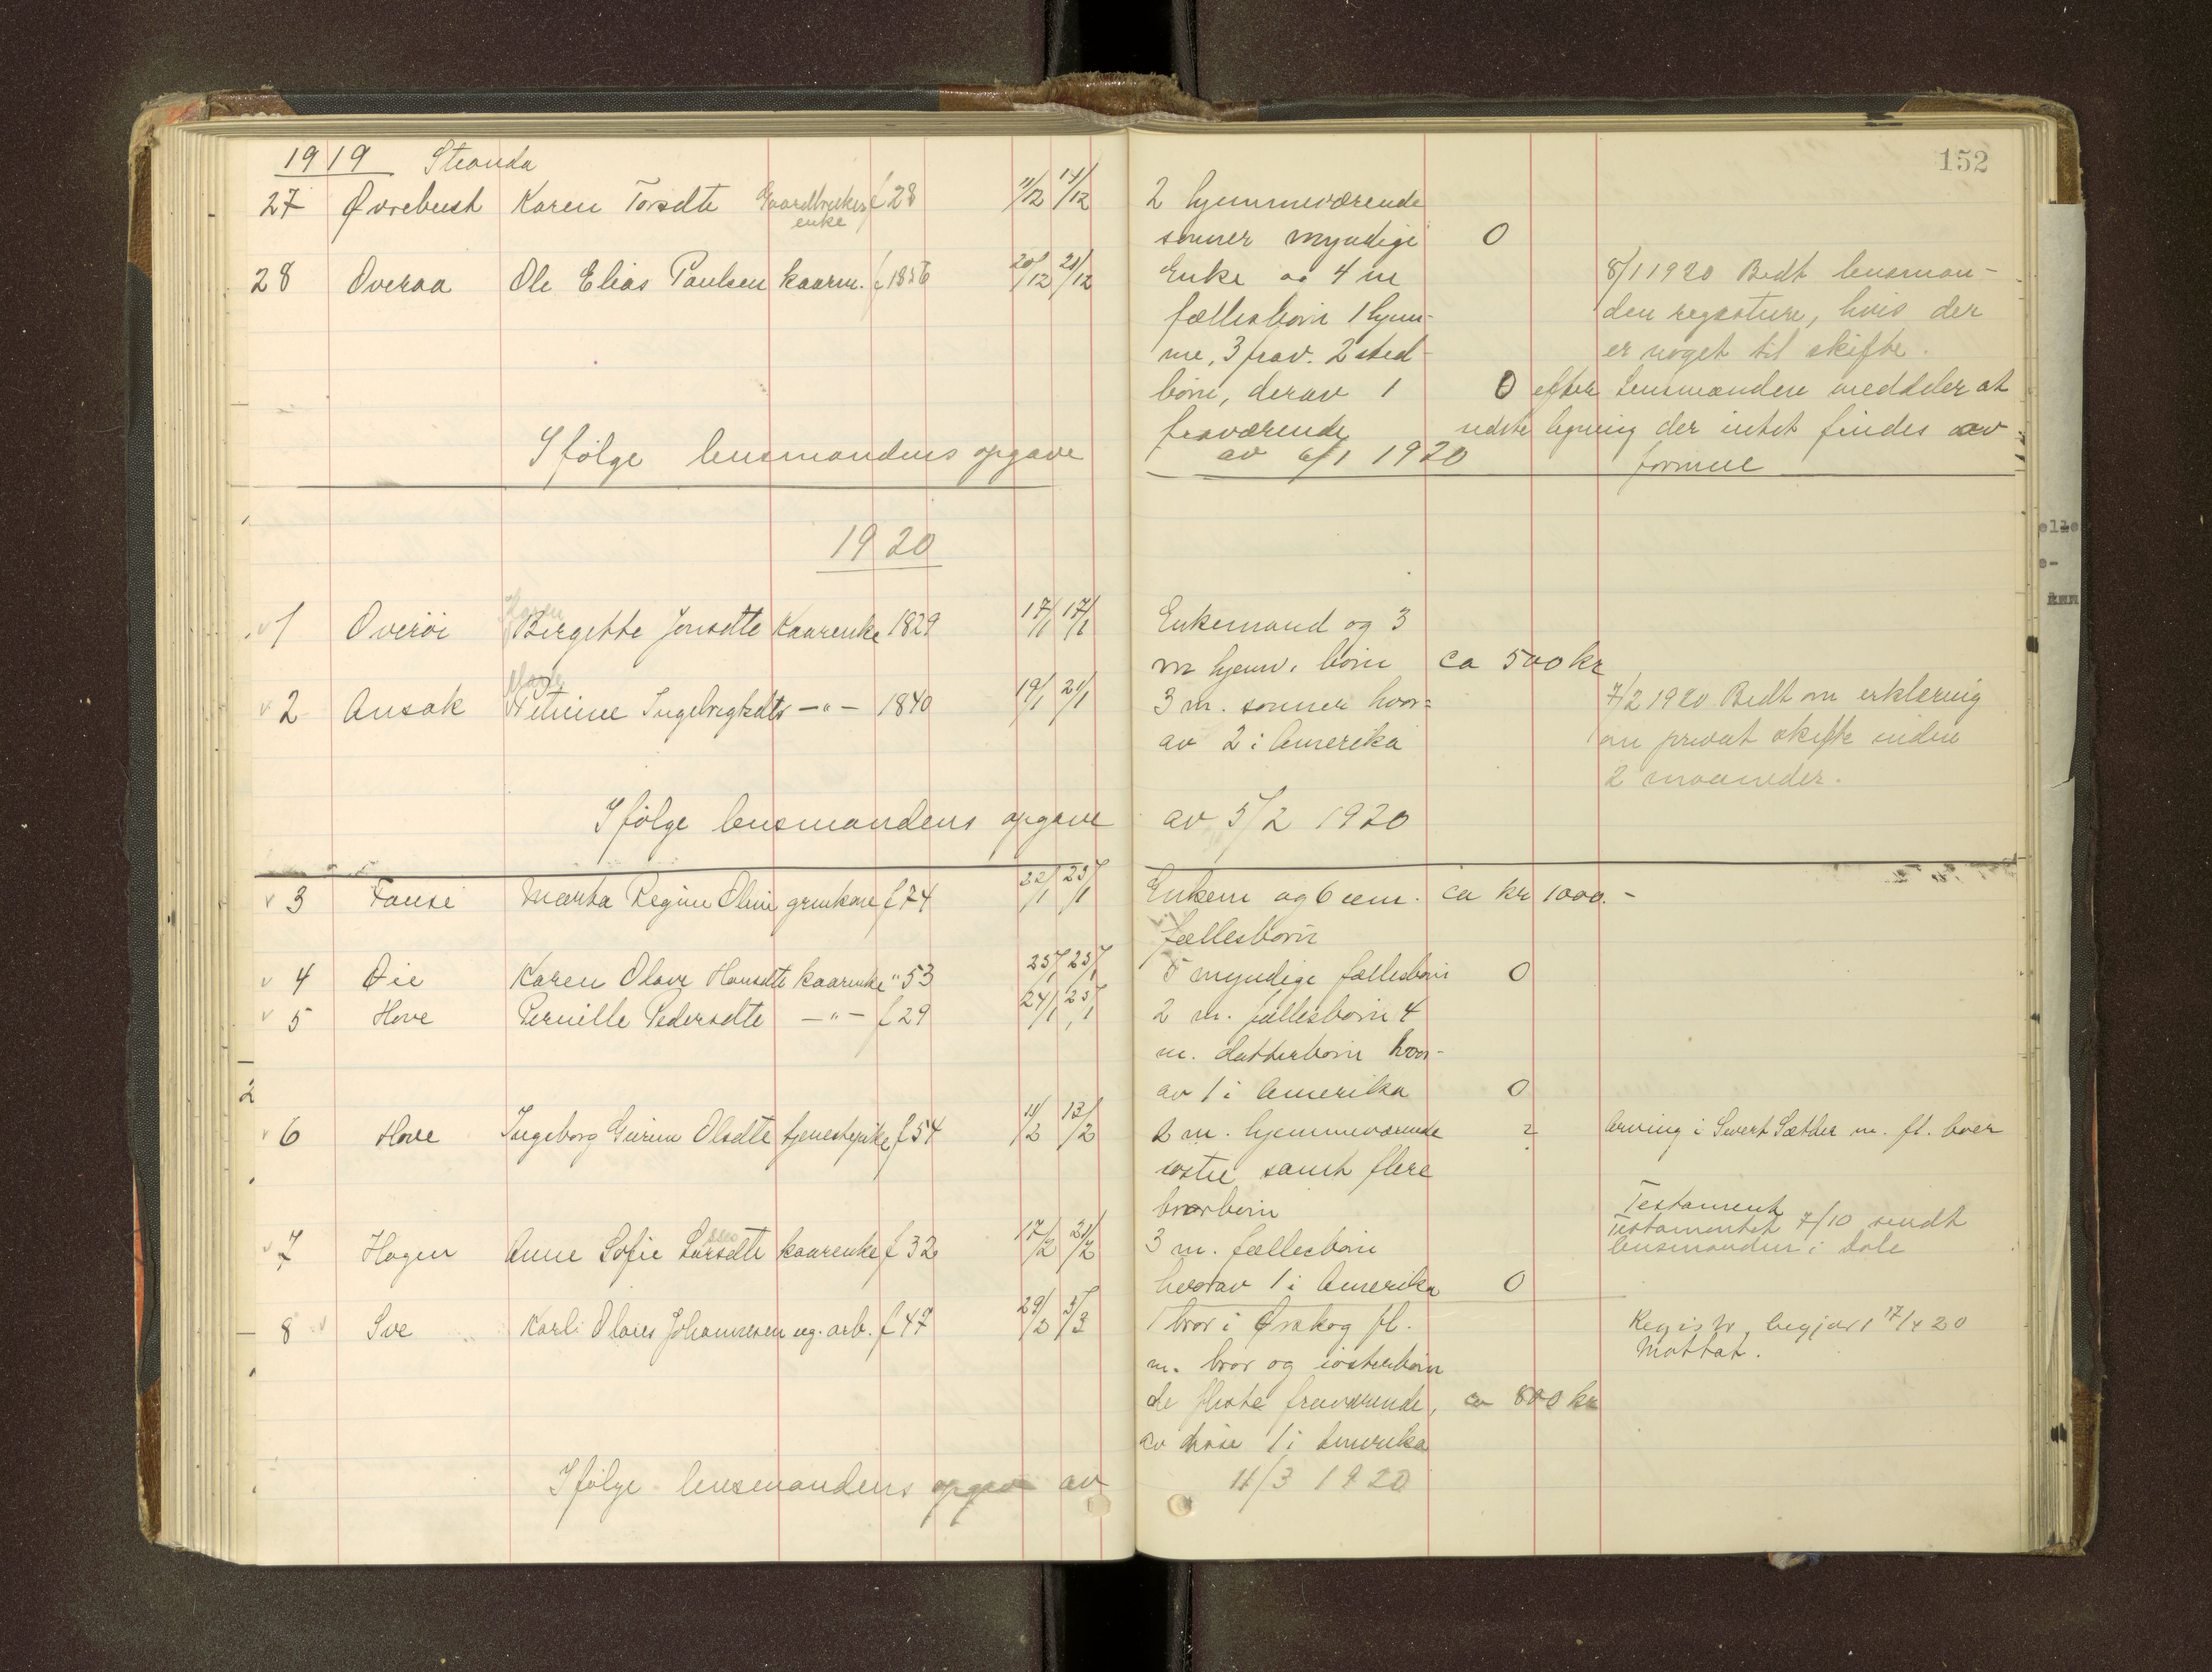 1919 Stranda
152
27 Øvrebust Karen Torsdte Gaardbrukers f 28 11/12 /12 2 hjemmeværende
enke
sønner myndige 0
28 Overaa Ole Elias Paulsen kaarm. f 1856 20/12 21/12 Enke og 4 m 8/1 1920 Bedt lensman-
fællesbørn 1 hjem- den registrere, hvis der
me, 3 frav. 2 sted er noget til skifte.
børn, derav 1 0 efter Lensmanden meddeler at
fraværende sidste ligning der intet findes av
Ifølge lensmandens opgave av 6/1 1920 formue
1920
v 1 Overøi Karen Birgitte Jonsdtte Kaarenke 1829 17/1 17/1 Enkemand og 3
m hjemv. børn ca 500 kr
v 2 Ansok Marte Petrine Ingebrigtsdtr —"— 1840 19/1 21/1 3 m. sønner hvor= 7/2 1920 Bedt om erklæring
av 2 i Amerika om privat skifte inden
2 maaneder.
Ifølge lensmandens opgave av 5/2 1920
v 3 Fause Marta Regine Oline grmkone f 74 22/1 25/1 Enkem og 6 um. ca kr 1000.-
fællesbørn
v 4 Øie Karen Olave Hansdtte kaarenke " 53 25/1 25/1 5 myndige fællesbørn 0
v 5 Hove Pernille Pedersdtte —"— f 29 24/1 25/1 2 m. fællesbørn 4
m. datterbørn hvor-
av 1 i Amerika 0
v 6 Hove Ingeborg Gurine Olsdtte tjenestepike f 54 11/2 13/2 2 m. hjemmeværende ? Arving i Sivert Sæther m. fl. boer
søstre samt flere
brorbørn
Testament
v 7 Hagen Anne Sofie Larsdtte kaarenke f 32 17/2 21/2 3 m. fællesbørn Testamentet 7/10 sendt
lensmanden i Dale
hvorav 1 i Amerika 0
8 v Sve Karl Olaus Johannesen ug. arb. f 47 29/2 5/3 1 bror i Ørskog fl. Registr. begjært 17/4 20
m. bror og søsterbørn Mottat.
de fleste fraværende, ca 800 kr
av disse 1 i Amerika
Ifølge lensmandens opgave av 11/3 1920
elle
e-